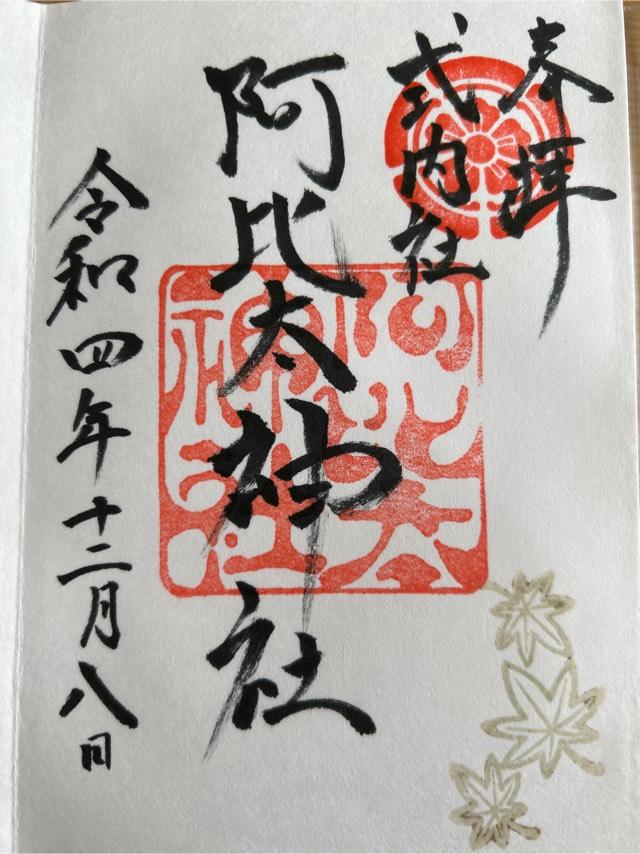 奉拝
式内社
阿比太神社
令和四年十二月八日
阿比太
神社